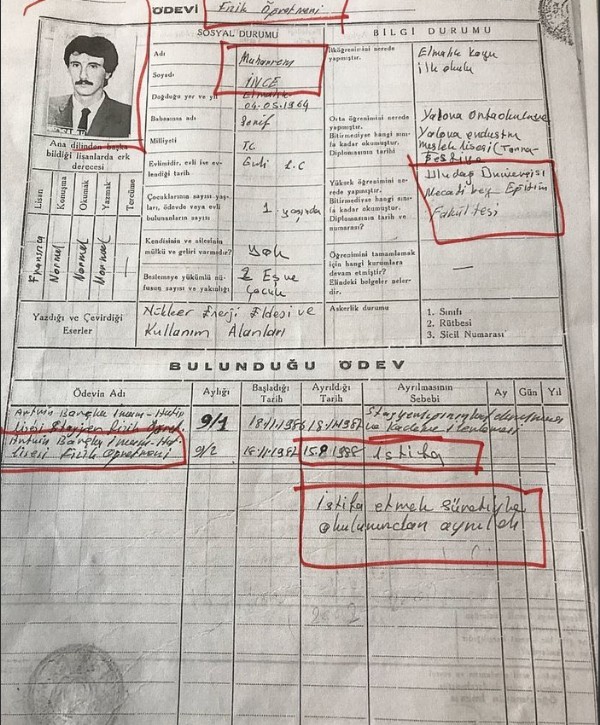 ÖDEVİ Fizik Öğretmeni
SOSYAL DURUMU
BİLGİ DURUMU
Adı
Muharrem
Soyadı
İNCE
Doğduğu yer ve yıl
Elmalık
04.05.1964
Babasının adı
Şerif
Milliyeti
T.C
Evlimidir, evli ise ev-
lendiği tarih
Evli
Çocuklarının sayısı yaş-
ları, ödevde veya evli
bulunanların sayısı
1 yaşında
Kendisinin ve ailesinin
mülkü ve geliri varmıdır?
Yok
Beslemeye yükümlü nü-
fusun sayısı ve yakınlığı
2 Eş ve
Çocuk
İlköğrenimini nerede
yapmıştır.
Elmalık Köyü
ilkokulu
Orta öğrenimini nerede
yapmıştır.
Bitirmediyse hangi sını-
fa kadar okumuştur.
Diplomasının tarihi
Yalova Ortaokulu
Yalova endüstri
meslek lisesi
Yüksek öğrenimini ne-
rede yapmıştır.
Bitirmediyse hangi sını-
fa kadar okumuştur.
Diplomasının tarih ve
numarası?
Uludağ Üniversitesi
Necatibey Eğitim
Fakültesi
Öğrenimini tamamlamak
için hangi kurumlara
devam etmiştir?
Elindeki belgeler neler-
dir.
—
Askerlik durumu
1. Sınıfı
2. Rütbesi
3. Sicil Numarası
Ana dilinden başka
bildiği lisanlarda erk
derecesi
Lisan
Konuşma
Okumak
Yazmak
Tercüme
Fransızca
Normal
Normal
Normal
—
Yazdığı ve Çevirdiği
Eserler
Nükleer Enerji Eldesi ve
Kullanım Alanları
BULUNDUĞU ÖDEV
Ödevin Adı
Aylığı
Başladığı
Tarih
Ayrıldığı
Tarih
Ayrılmasının
Sebebi
Ay
Gün
Yıl
Artvin Borçka İmam-Hatip
Lisesi Stajyer Fizik Öğret.
9/1
18.11.1986
18.11.1987
ve Kademe ilerlemesi
Artvin Borçka İmam-Hat.
Lisesi Fizik Öğretmeni
9/2
18.11.1987
15.9.1988
istifa
İstifa etmek süretiyle
okulumuzdan ayrıldı